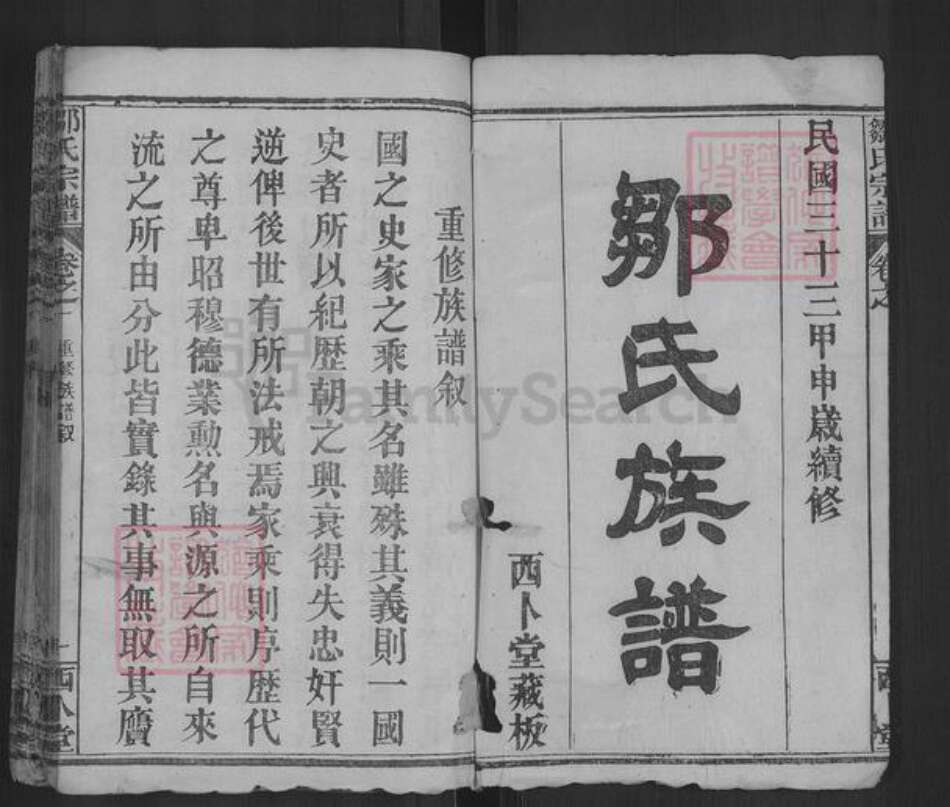 鄒氏宗譜 卷之
民國三十三甲申歲續修
鄒氏族譜
西卜堂藏板
重修族譜叙
國之史家之乘其名雖殊其義則一國
史者所以紀歷朝之興衰得失忠奸賢
逆俾後世有所法戒焉家乘則序歷代
之尊卑昭穆德業勲名與源之所自來
流之所由分此皆實錄其事無取其廣
鄒氏宗譜 卷之一 重修族譜叙 一 西卜堂
FamilySearch